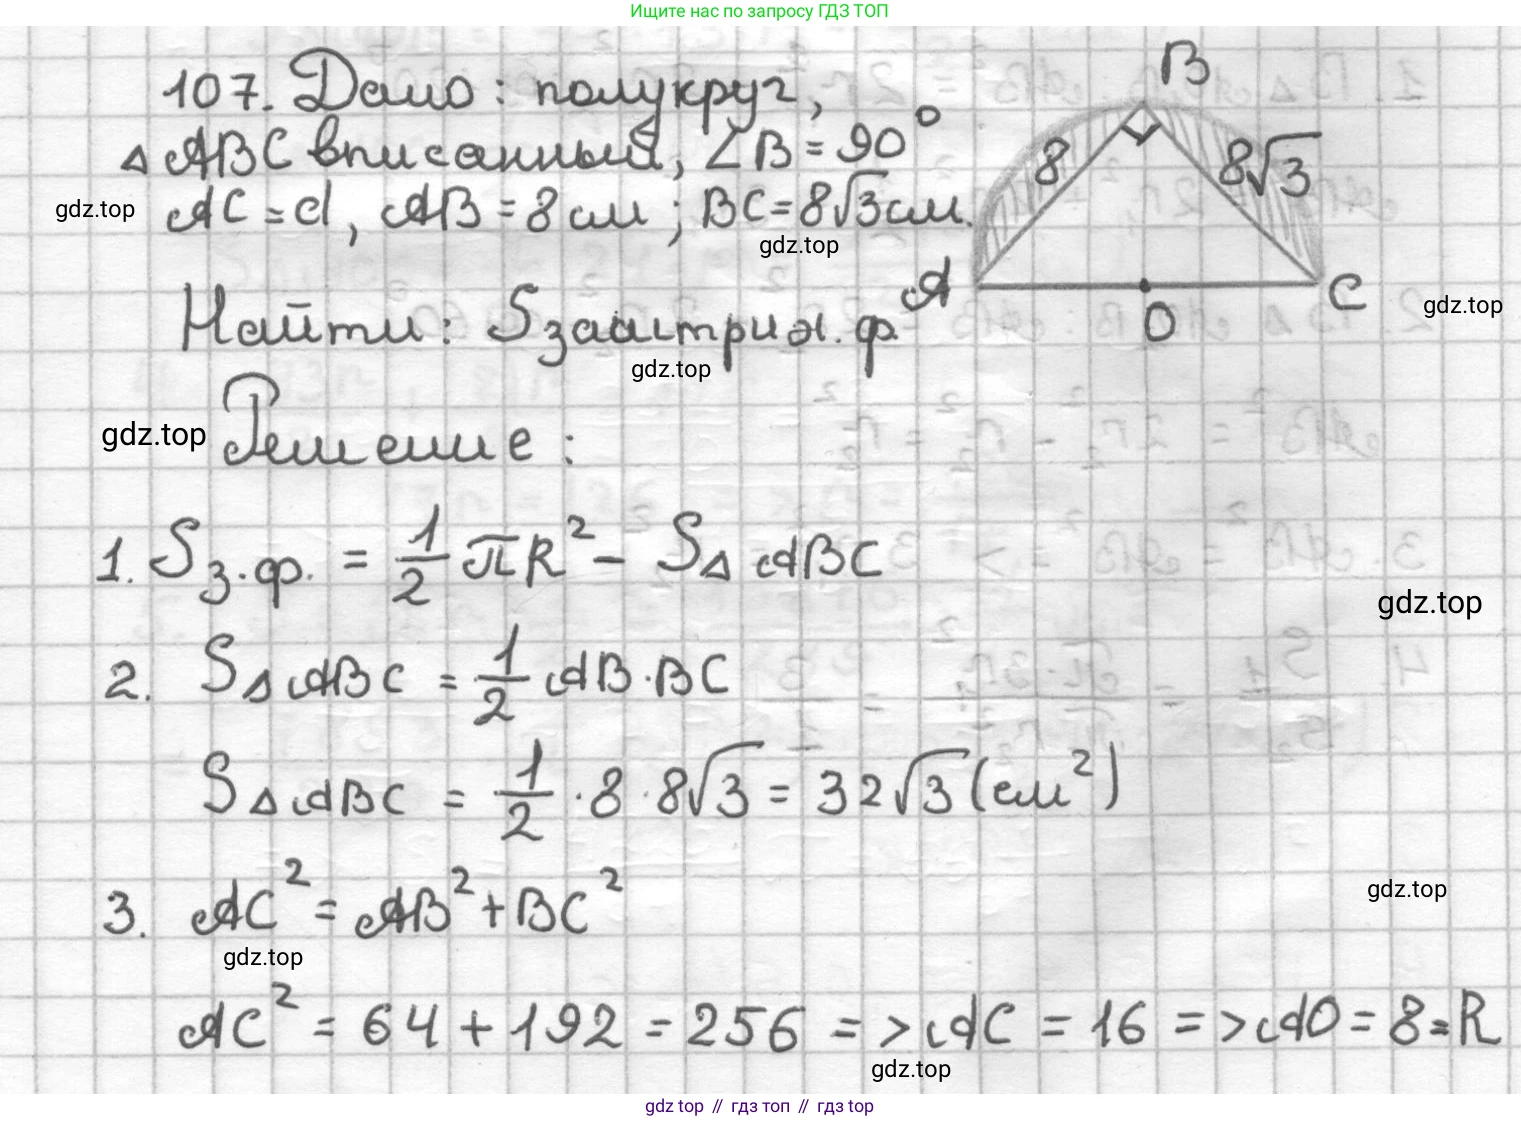 Ищите нас по запросу ГДЗ ТОП
107. Дано: полукруг,
△ ABC вписанный, ∠B = 90°
AC = d, AB = 8 см; BC = 8√3 см.
gdz.top
gdz.top
B
8
8√3
A
O
C
gdz.top
Найти: Sзаштрих. ф.
gdz.top
gdz.top
Решение:
1. Sз.ф. = 1/2 πR² − S△ ABC
gdz.top
2. S△ ABC = 1/2 AB · BC
S△ ABC = 1/2 · 8 · 8√3 = 32√3 (см²)
3. AC² = AB² + BC²
gdz.top
gdz.top
AC² = 64 + 192 = 256 => AC = 16 => AO = 8 = R
gdz.top
gdz top // гдз топ // гдз top